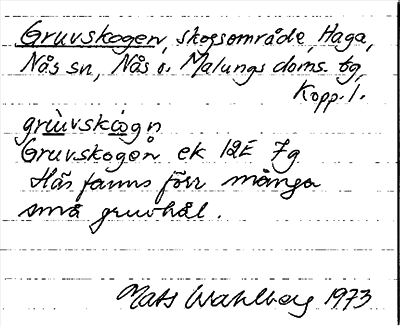 Gruvskogen, skogsområde, Haga,
Nås sn, Nås o. Malungs doms. tg,
Kopp. l.
grùvskògn
Gruvskogen ek 12E 7g
Här fanns förr många
små gruvhål.
Mats Wahlberg 1973